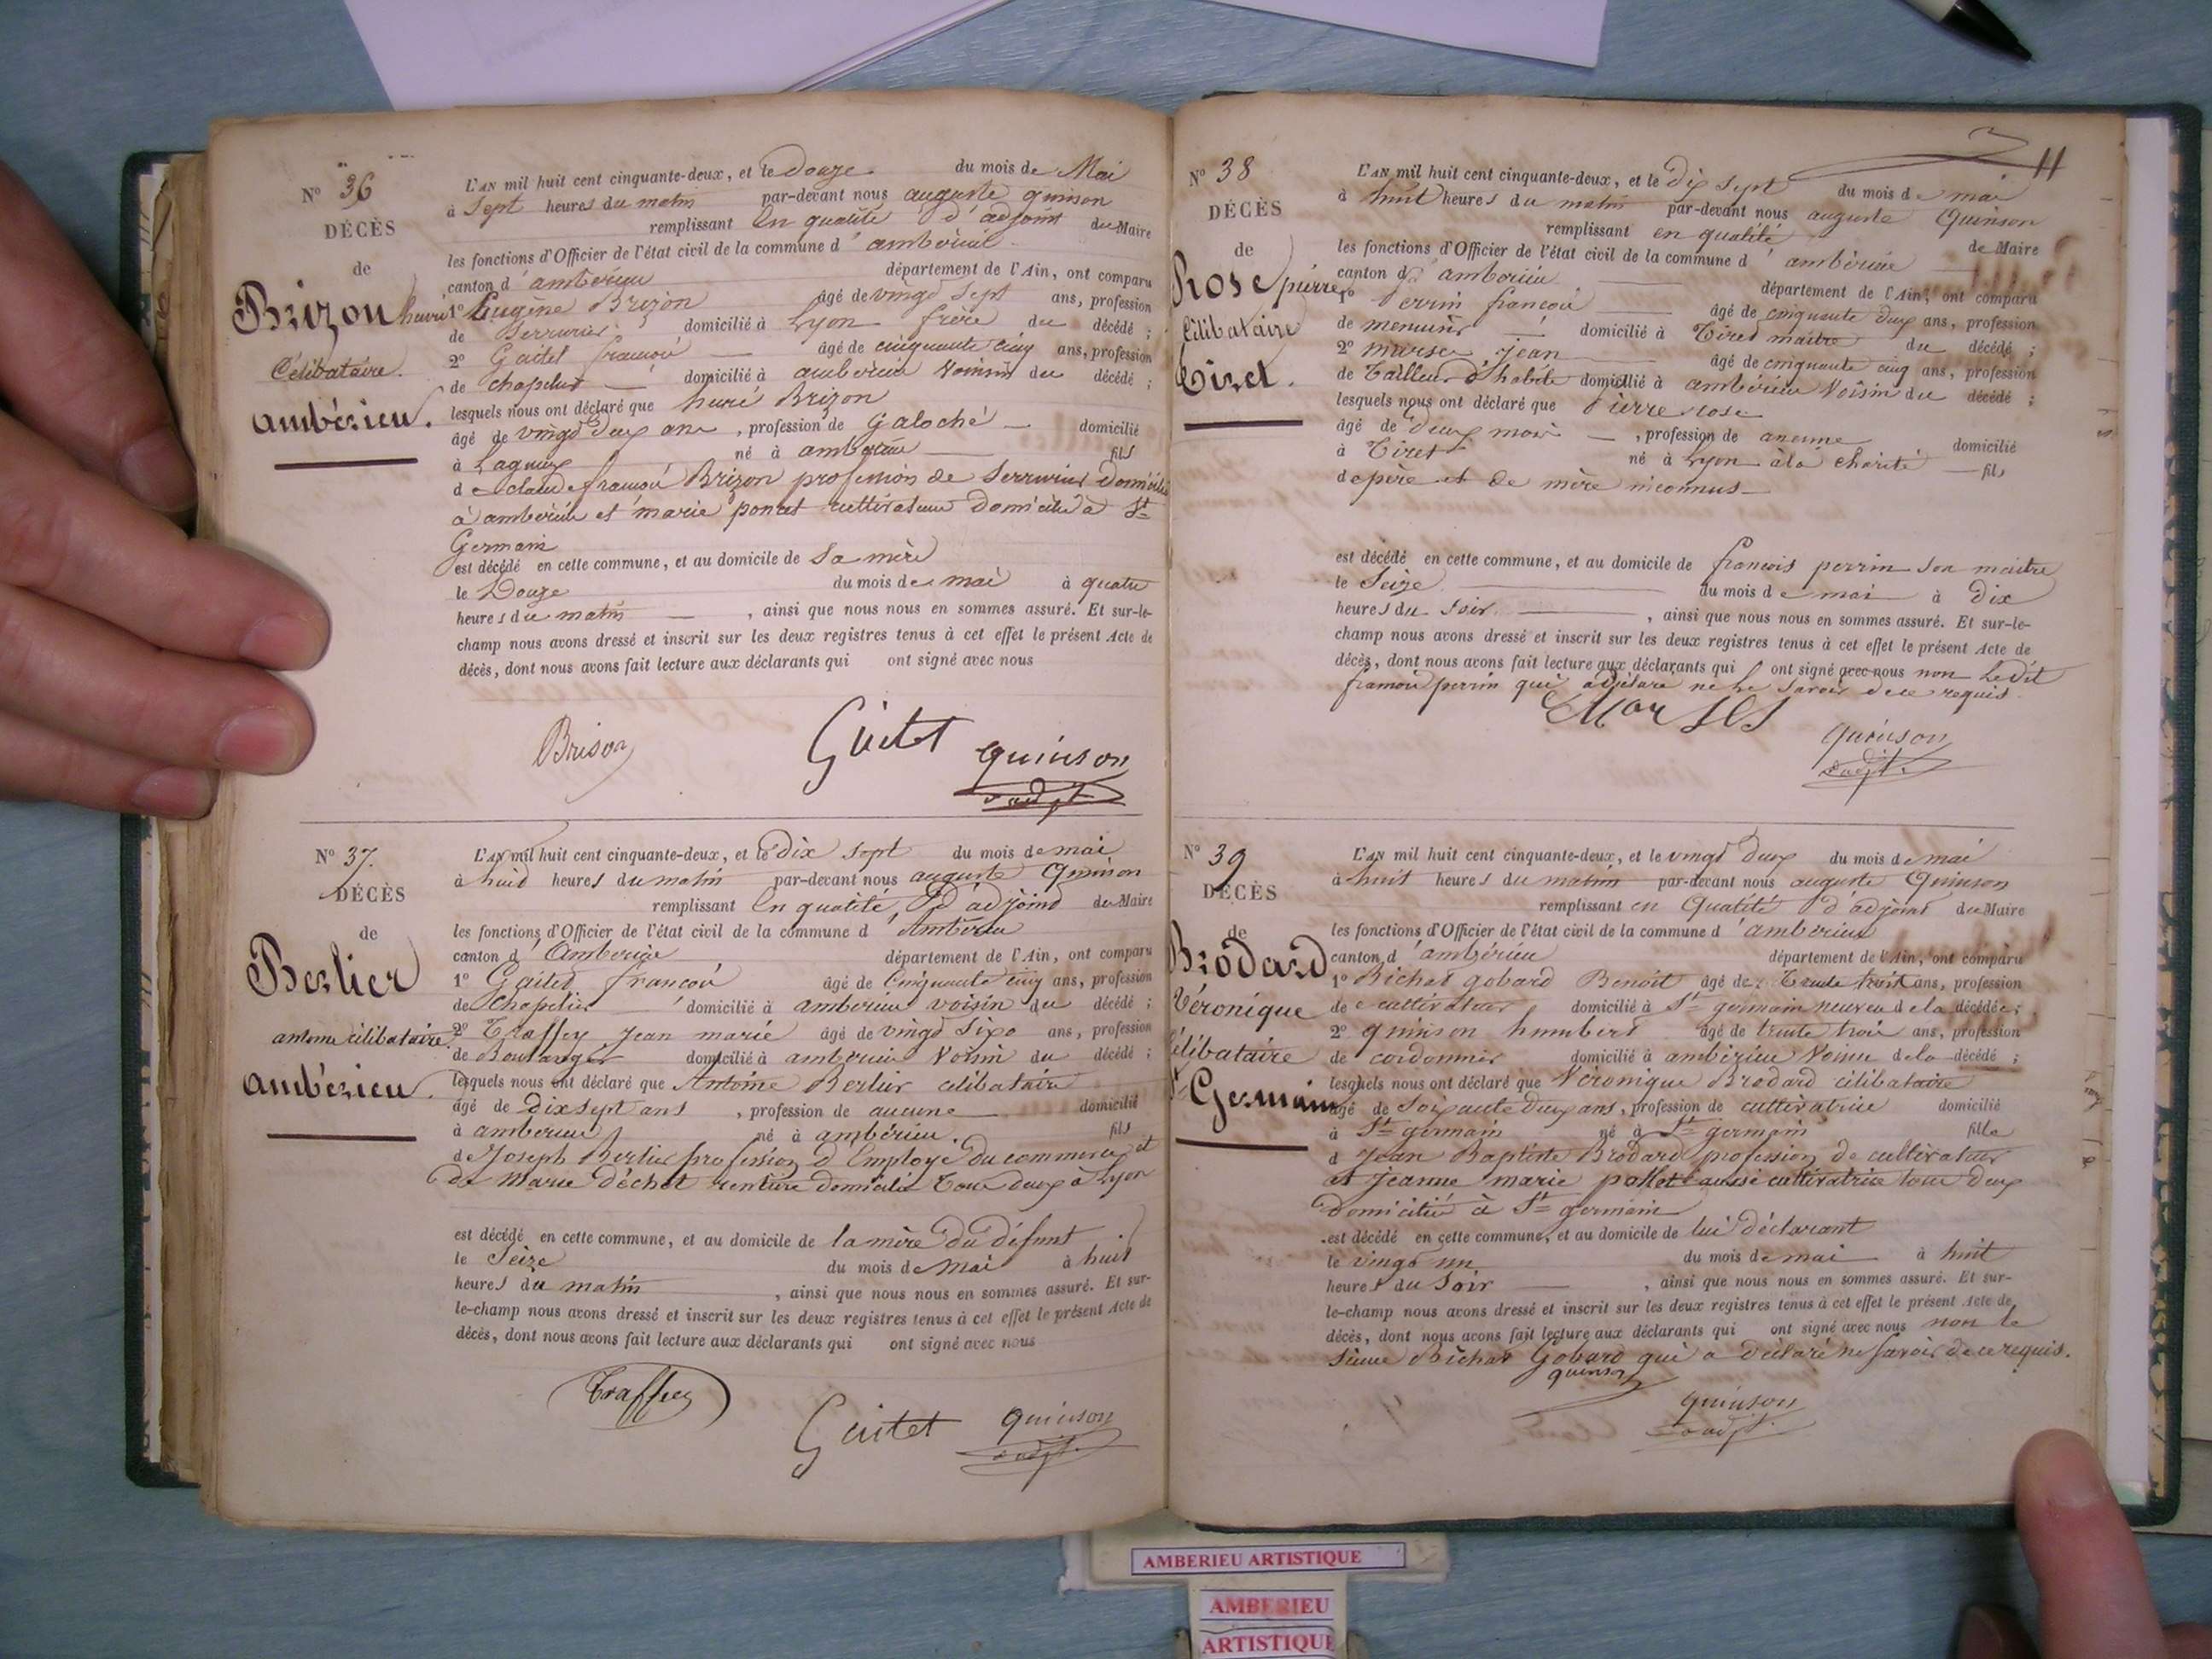 N° 36
DÉCÈS
de
Brizon henri
Célibataire.
ambérieu.
L'AN mil huit cent cinquante-deux, et le Douze du mois de Mai
à Sept heures du matin par-devant nous auguste quinson
remplissant En qualité d'adjoint du Maire
les fonctions d'Officier de l'état civil de la commune d'ambérieu
canton d'ambérieu département de l'Ain, ont comparu
1° Eugène Brizon âgé de vingt Sept ans, profession
de Serrurier domicilié à Lyon frère du décédé ;
2° Gaitet françois âgé de cinquante cinq ans, profession
de chapelier domicilié à ambérieu Voisin du décédé ;
lesquels nous ont déclaré que henri Brizon
âgé de vingt deux ans, profession de Galoché domicilié
à Lagnieu né à ambérieu fils
de claude françois Brizon profession de Serrurier Domicilié
à ambérieu et marie poncet cultivateur Domicilié à St
Germain
est décédé en cette commune, et au domicile de Sa mère
le Douze du mois de mai à quatre
heures du matin, ainsi que nous nous en sommes assuré. Et sur-le-
champ nous avons dressé et inscrit sur les deux registres tenus à cet effet le présent Acte de
décès, dont nous avons fait lecture aux déclarants qui ont signé avec nous
Brison Gaitet quinson
d'adjt
N° 37.
DÉCÈS
de
Berlier
antoine célibataire
ambérieu.
L'AN mil huit cent cinquante-deux, et le Dix sept du mois de mai
à huid heures du matin par-devant nous auguste Quinson
remplissant En qualité, d'adjoind du Maire
les fonctions d'Officier de l'état civil de la commune d'Ambérieu
canton d'Ambérieu département de l'Ain, ont comparu
1° Gaitet françois âgé de Cinquante cinq ans, profession
de Chapelier domicilié à ambérieu voisin du décédé ;
2° Traffey Jean marie âgé de vingt Sixe ans, profession
de Boulanger domicilié à ambérieu Voisin du décédé ;
lesquels nous ont déclaré que Antoine Berlier célibataire
âgé de Dix sept ans, profession de aucune domicilié
à ambérieu né à ambérieu. fils
de Joseph Berlier profession d'Employé du commerce et
de Marie Déchet rentière domicilié tous deux à Lyon
est décédé en cette commune, et au domicile de la mère du défunt
le Seize du mois de Mai à huit
heures du matin, ainsi que nous nous en sommes assuré. Et sur-
le-champ nous avons dressé et inscrit sur les deux registres tenus à cet effet le présent Acte de
décès, dont nous avons fait lecture aux déclarants qui ont signé avec nous
Traffey
Gaitet quinson
d'adjt.
11
N° 38
DÉCÈS
de
Rose pierre
Célibataire
Tiret.
L'AN mil huit cent cinquante-deux, et le Dix sept du mois de mai
à huit heures du matin par-devant nous auguste Quinson
remplissant en qualité de Maire
les fonctions d'Officier de l'état civil de la commune d'ambérieu
canton d'ambérieu département de l'Ain, ont comparu
1° Perrin françois âgé de cinquante deux ans, profession
de menuisier domicilié à Tiret maitre du décédé ;
2° Jean âgé de cinquante cinq ans, profession
de Tailleur d'habits domicilié à ambérieu Voisin du décédé ;
lesquels nous ont déclaré que Pierre rose
âgé de Deux mois, profession de aucune domicilié
à Tiret né à Lyon à la charité fils
de père et de mère inconnus
est décédé en cette commune, et au domicile de francois perrin son maitre
le Seize du mois de mai à Dix
heures du Soir, ainsi que nous nous en sommes assuré. Et sur-le-
champ nous avons dressé et inscrit sur les deux registres tenus à cet effet le présent Acte de
décès, dont nous avons fait lecture aux déclarants qui ont signé avec nous non Ledit
francois perrin qui a déclaré ne le savoir de ce requis.
quinson
d'adjt.
N° 39
DÉCÈS
de
Brodard
Véronique
Célibataire
St Germain
L'AN mil huit cent cinquante-deux, et le vingt deux du mois de mai
à huit heures du matin par-devant nous auguste Quinson
remplissant en Qualité d'adjoint du Maire
les fonctions d'Officier de l'état civil de la commune d'ambérieu
canton d'ambérieu département de l'Ain, ont comparu
1° Richet gobard Benoit âgé de Trente huit ans, profession
de cultivateur domicilié à St germain neuveu de la décédée ;
2° quinson humbert âgé de trente trois ans, profession
de cordonnier domicilié à ambérieu Voisin de la décédé ;
lesquels nous ont déclaré que Véronique Brodard célibataire
âgé de Soixante Deux ans, profession de cultivatrice domicilié
à St germain né à St germain fille
d Jean Baptiste Brodard profession de cultivateur
et jeanne marie pollet aussi cultivatrice tous deux
domicilié à St germain
est décédé en cette commune, et au domicile de lui déclarant
le vingt un du mois de mai à huit
heures du Soir, ainsi que nous nous en sommes assuré. Et sur-
le-champ nous avons dressé et inscrit sur les deux registres tenus à cet effet le présent Acte de
décès, dont nous avons fait lecture aux déclarants qui ont signé avec nous non le
Sieur Richet Gobard qui a déclaré ne savoir de ce requis.
quinson
quinson
d'adjt.
AMBERIEU ARTISTIQUE
AMBERIEU
ARTISTIQUE